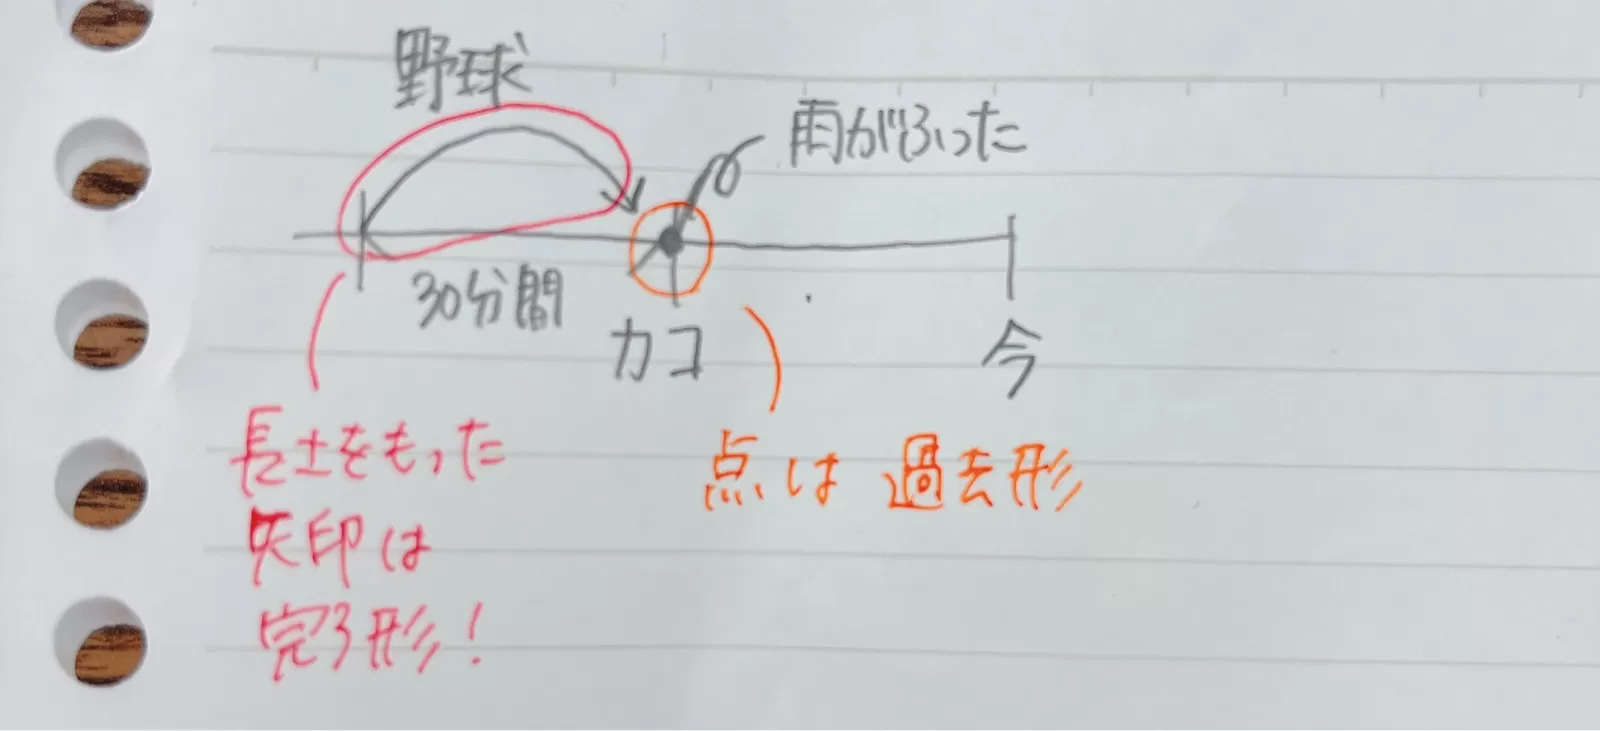 野球
雨がふった
30分間
カコ
今
長さをもった
矢印は
完了形！
点は 過去形